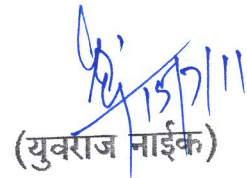 15/7/11
(युवराज नाईक)